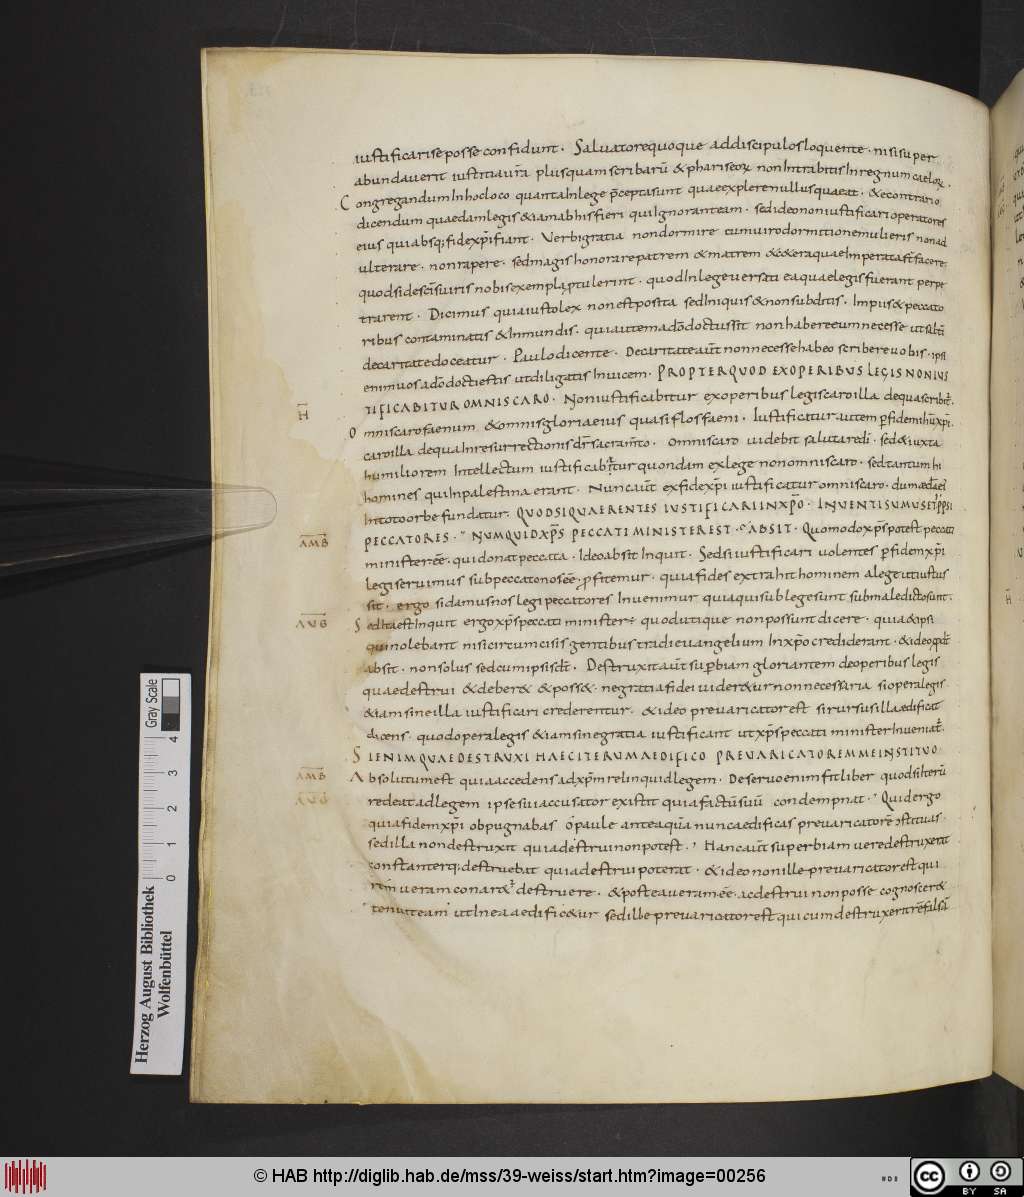 iustificari se posse confidunt. Saluatore quoque ad discipulos loquente. nisi super
abundauerit iustitia ur̄a plus quam scribarū & phariseoꝝ non Intrabitis In regnum caeloꝝ.
Congregandum In hoc loco quanta In lege p̄cepta sunt quae explere nullus quaeat. & e contrario
dicendum quaedam legis & iam ab his fieri qui Ignorant eam. sed ideo non iustificari operatores
eius qui absq; fide xp̄i fiant. Verbi gratia non dormire cum uiro dormitione mulieris non ad
ulterare. non rapere. sed magis honorare patrem & matrem & c&era quae Imperata st̄ facere.
quod si de sc̄is uiris nobis exempla ptulerint. quod In lege uersati ea quae legis fuerant perpe
trarent. Dicimus quia iusto lex non est posita sed Iniquis & non subditis. Impiis & peccato
ribus contaminatis & Inmundis. qui autem a dō doctus sit non habere eum necesse ut saltī
de caritate doceatur. Paulo dicente. De caritate aūt non necesse habeo scribere uobis. ipsi
enim uos a dō docti estis ut diligatis Inuicem. PROPTER QUOD EX OPERIBUS LEGIS NON IUS
TIFICABITUR OMNIS CARO. Non iustificabitur ex operibus legis caro illa de qua scribit̄.
H̄
Omnis caro faenum & omnis gloria eius quasi flos faeni. Iustificatur autem p fidem ihū xp̄i.
caro illa de qua In resurrectionis dr̄ sacram̄to. omnis caro uidebit salutare dī. sed & iuxta
humiliorem Intellectum iustificabitur quondam ex lege non omnis caro. sed tantum hi
homines qui In palestina erant. Nunc aūt ex fide xp̄i iustificatur omnis caro. dum aecl̄a ei
In toto orbe fundatur. QUOD SI QUAERENTES IUSTIFICARI IN XP̄O. INVENTI SUMUS ET IPSI
AMB̄
PECCATORES. NUMQUID XP̄S PECCATI MINISTER EST. ABSIT. Quomodo xp̄s potest peccati
minister eē. qui donat peccata. Ideo absit Inquit. Sed si iustificari uolentes p fidem xp̄i
legi seruimus sub peccato nos eē. pfitemur. quia fides extrahit hominem a lege ut iustus
sit. ergo si damus nos legi peccatores Inuenimur quia qui sub lege sunt sub maledicto sunt.
AUḠ
Sed Ita est Inquit ergo xp̄s peccati minister; quod utique non possunt dicere. quia & ipsi
qui nolebant nisi circumcisis gentibus tradi euangelium In xp̄o crediderant. & ideo
absit. non solus sed cum ipsis dc̄t. Destruxit aūt supbiam gloriantem de operibus legis
quae destrui & deber& & poss&. ne gratia fidei uider&ur non necessaria si opera legis.
& iam sine illa iustificari crederentur. & ideo preuaricator est si rursus illa aedificat
dicens. quod opera legis & iam sine gratia iustificant ut xp̄s peccati minister Inueniat̄.
SI ENIM QUAE DESTRUXI HAEC ITERUM AEDIFICO PREUARICATOREM ME INSTITUO
AMB̄
Absolutum est quia accedens ad xp̄m relinquid legem. De seruo enim fit liber quod si iterū
AUḠ
redeat ad legem ipse sui accusator existit quia factū suū condempnat. Qui d ergo
quia fidem xp̄i obpugnabas o paule antea quā nunc aedificas preuaricatorē ↄstituas.
sed illa non destruxit quia destrui non potest. Hanc aūt superbiam uere destruxerat
constanterq; destruebat quia destrui poterat. & ideo non ille preuaricator est qui
rem ueram conar& destruere. & postea ueram eē. ac destrui non posse cognoscer&
tenuit eam ut In ea aedific&ur sed ille preuaricator est qui cum destruxerit rē falsā
Herzog August Bibliothek
Wolfenbüttel
Gray Scale
0 1 2 3 4
© HAB http://diglib.hab.de/mss/39-weiss/start.htm?image=00256
cc BY SA